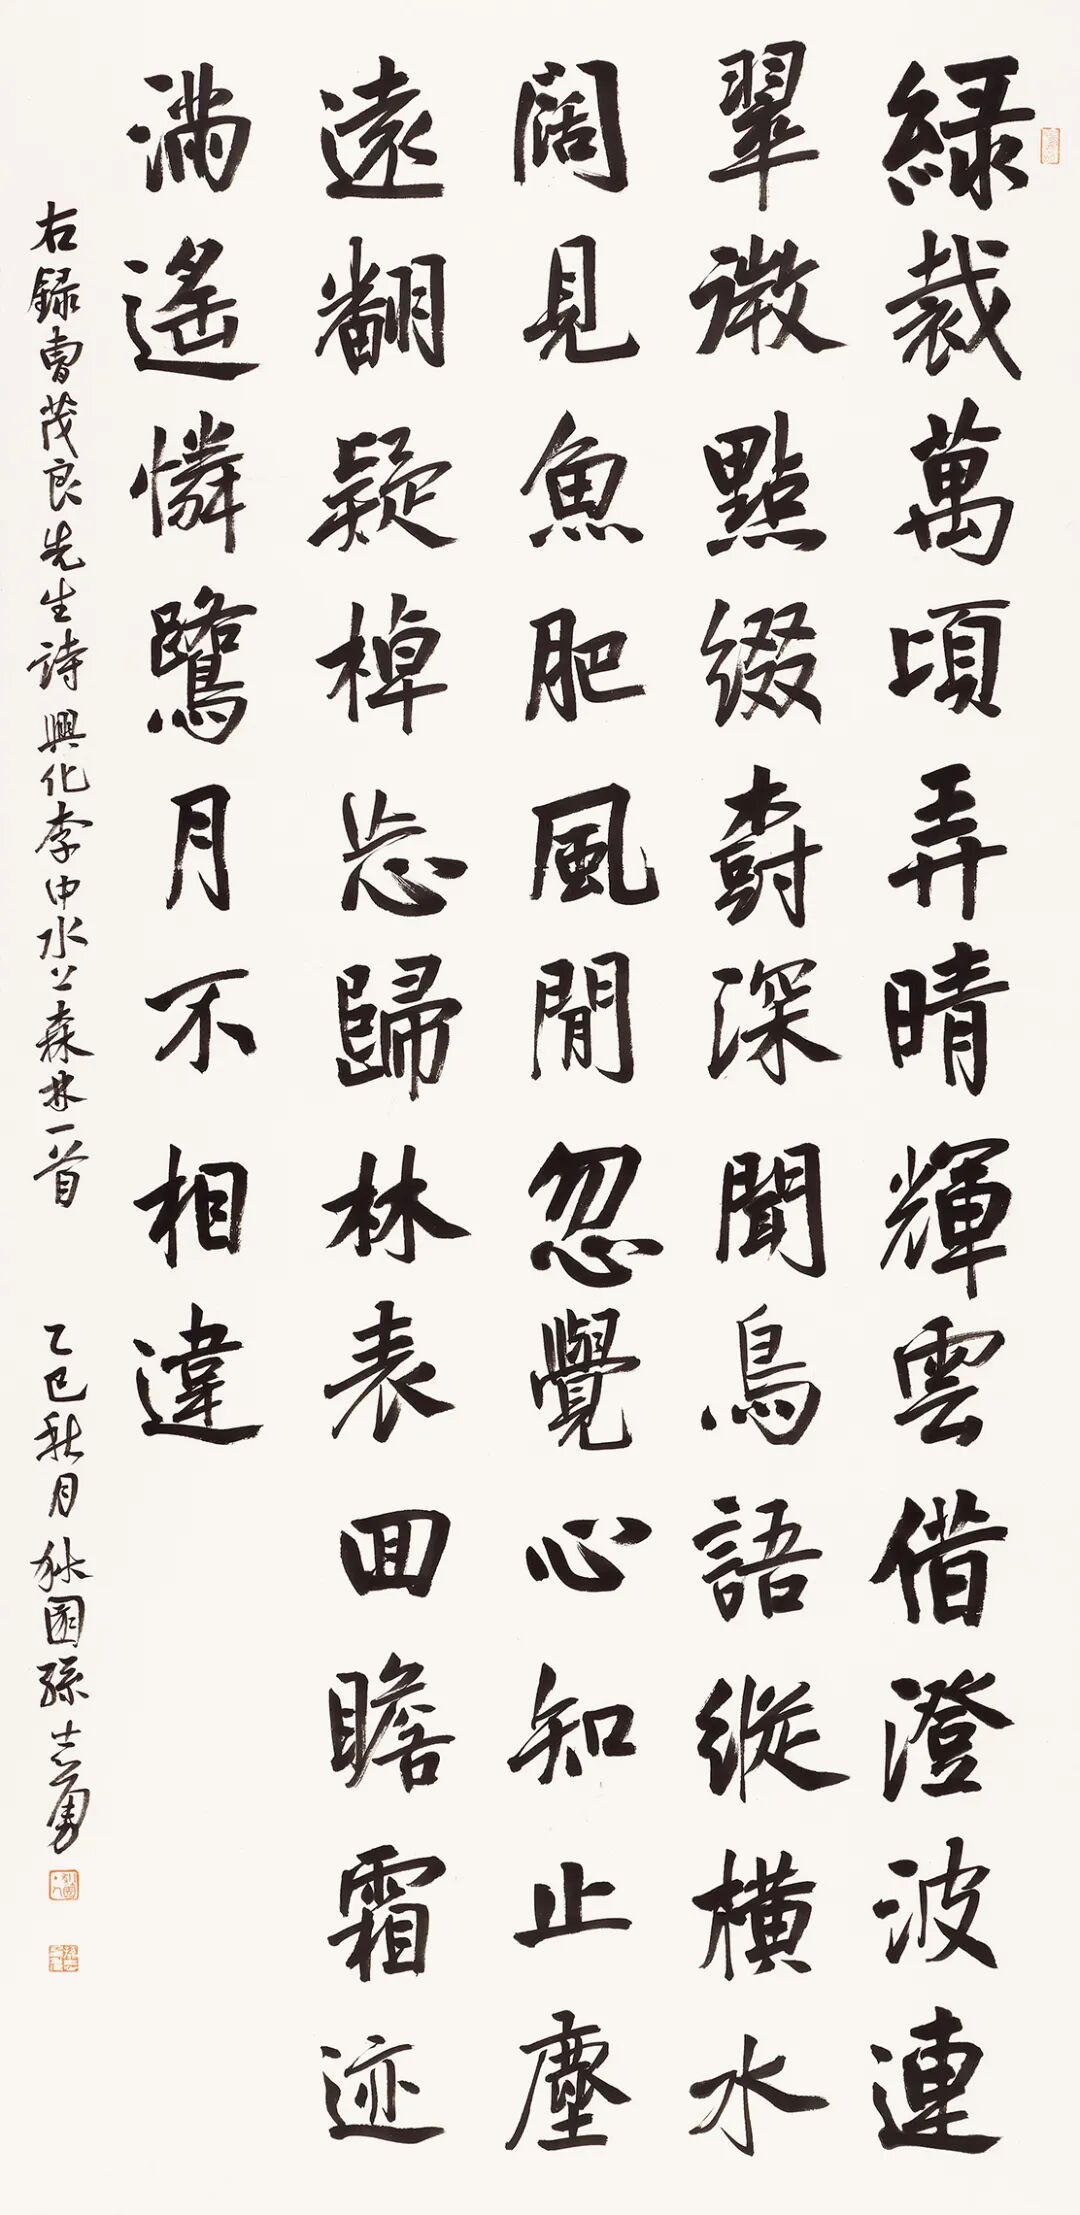 綠裁萬頃弄晴輝雲借澄波連
翠微點綴樹深聞鳥語縱橫水
闊見魚肥風閒忽覺心知止塵
遠翻疑棹忘歸林表回瞻霜迹
滿遙憐鷺月不相違
右錄曹茂良先生詩興化李中水上森林一首 乙巳秋月園孫志勇